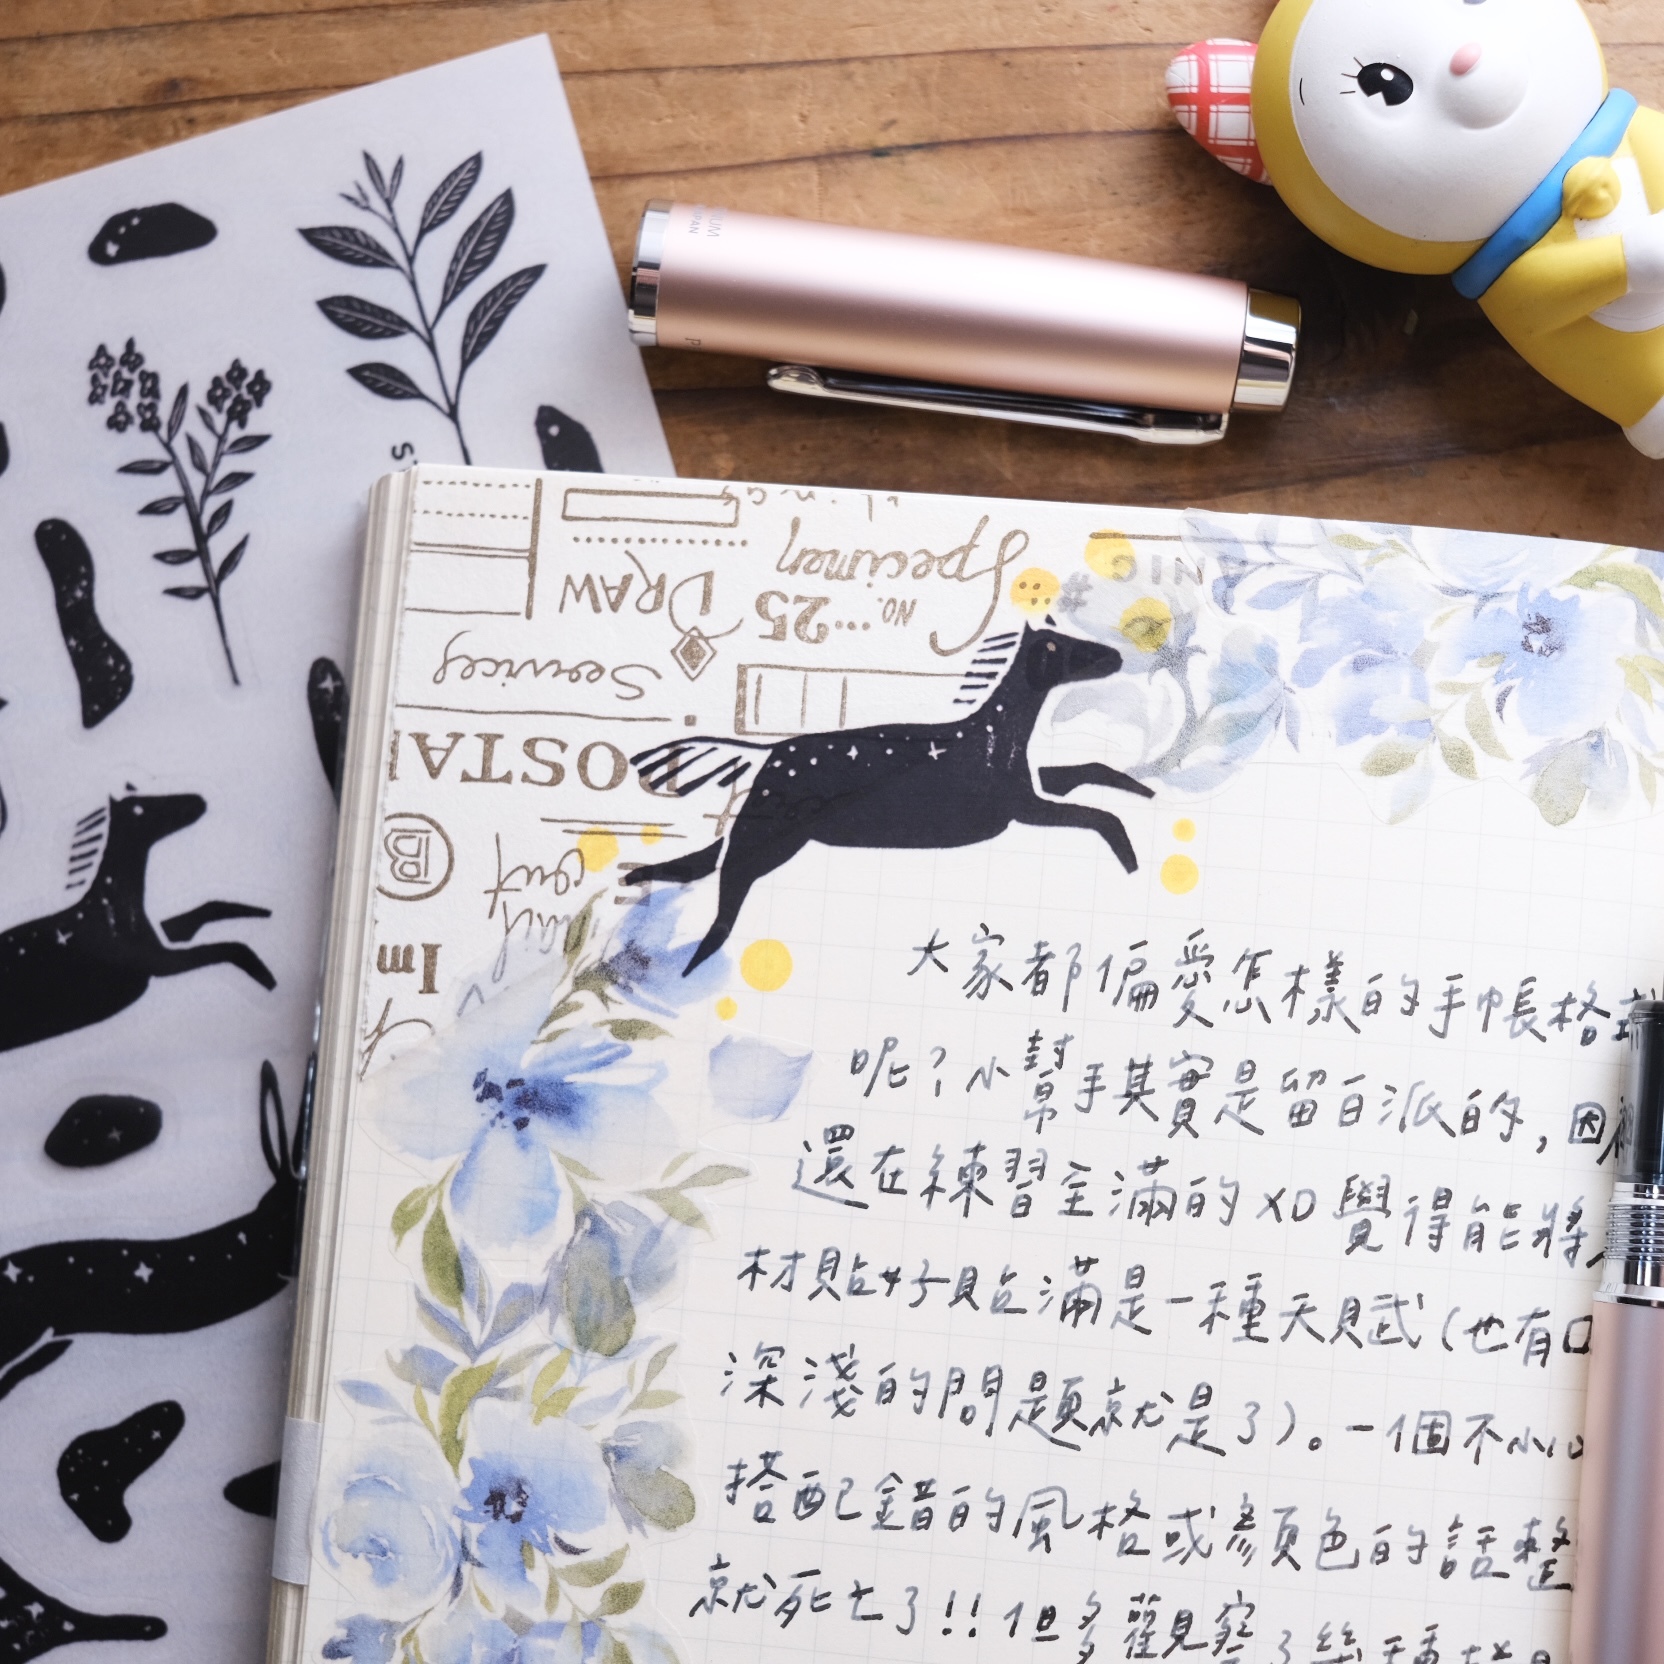 Specimen
DRAW
No. ... 25
Services
POSTA
B
out
Im
ANIC
#
大家都偏愛怎樣的手帳格
呢？小幫手其實是留白派的，因
還在練習全滿的XD 覺得能將
材貼好貼滿是一種天賦（也有
深淺的問題就是了）。一個不小心
搭配錯的風格或顏色的話整
就死亡了!! 但多觀察了幾種